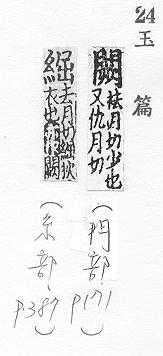 24
玉 篇
闕 袪月切少也
又仇月切
(門部、P171)
去月切 狄
衣也 闕
(糸部、P.387)